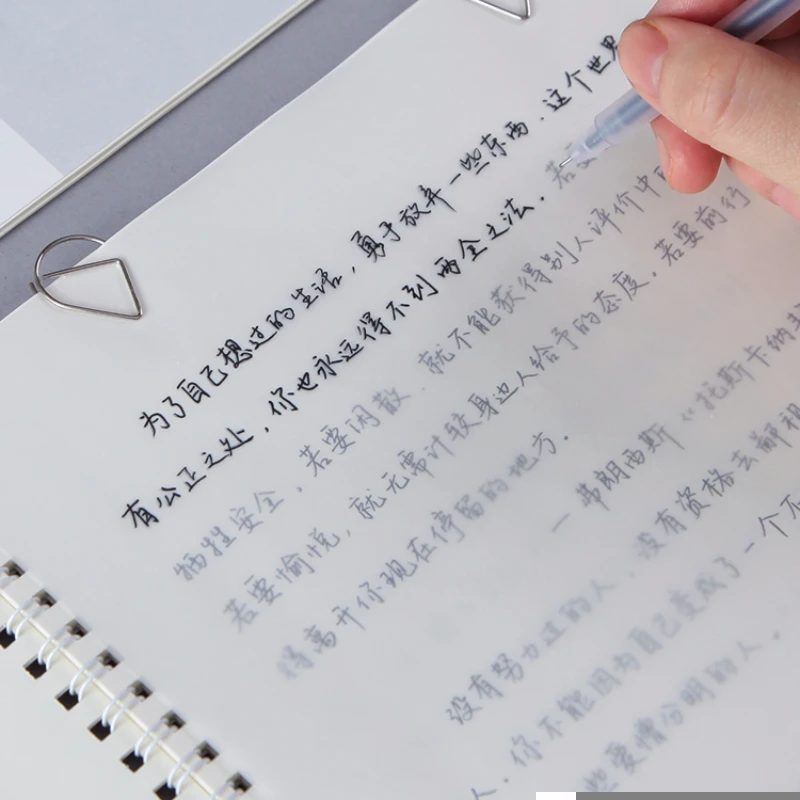 为了自己想过的生活，勇于放弃一些东西．这个世界
有公正之处，你也永远得不到两全之法．若要
牺牲安全．若要闲散．就不能获得别人评价中
若要愉悦，就无需计较身边人给予的态度．若要前行
得离开你现在停留的地方．
—弗朗西斯《托斯卡纳
没有努力过的人．没有资格去鄙视
人．你不能因为自己变成了一个不
些爱憎分明的人．